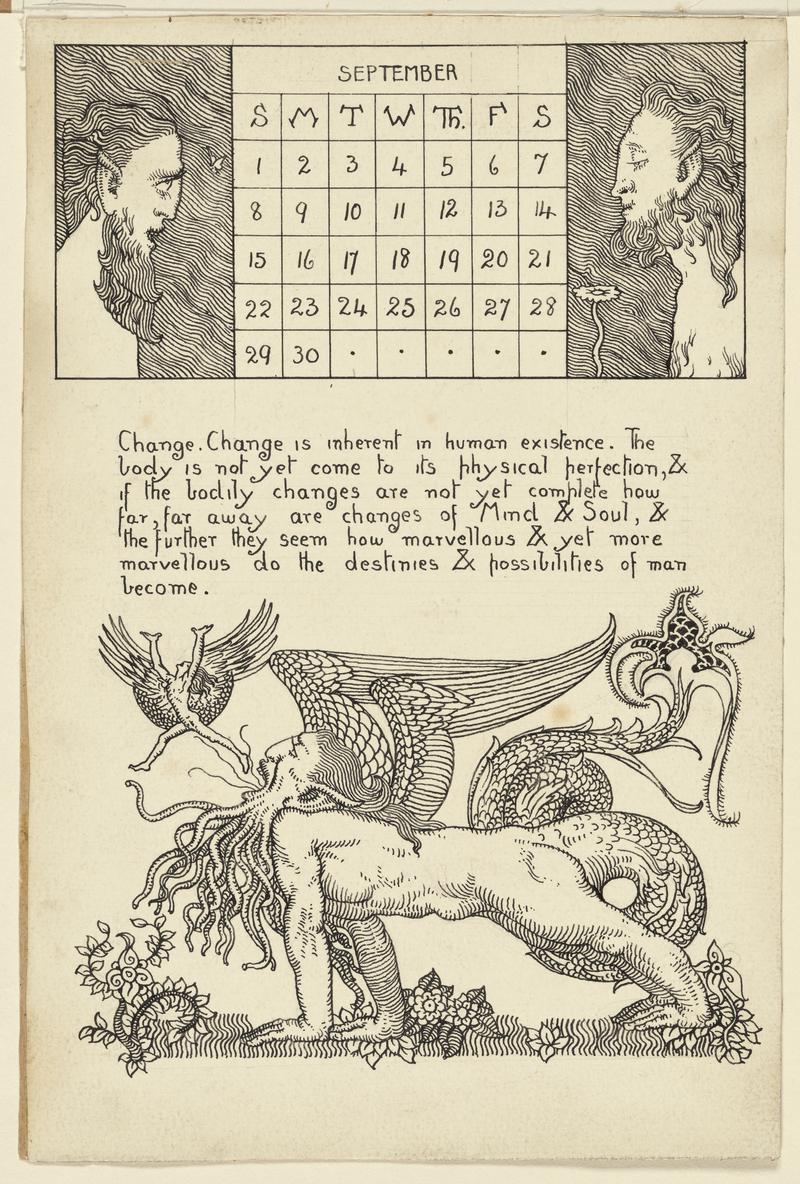 SEPTEMBER
S M T W Th. F S
1 2 3 4 5 6 7
8 9 10 11 12 13 14
15 16 17 18 19 20 21
22 23 24 25 26 27 28
29 30 . . . . .
Change. Change is inherent in human existence. The
body is not yet come to its physical perfection, &
if the bodily changes are not yet complete how
far, far away are changes of Mind & Soul, &
the further they seem how marvellous & yet more
marvellous do the destinies & possibilities of man
become.